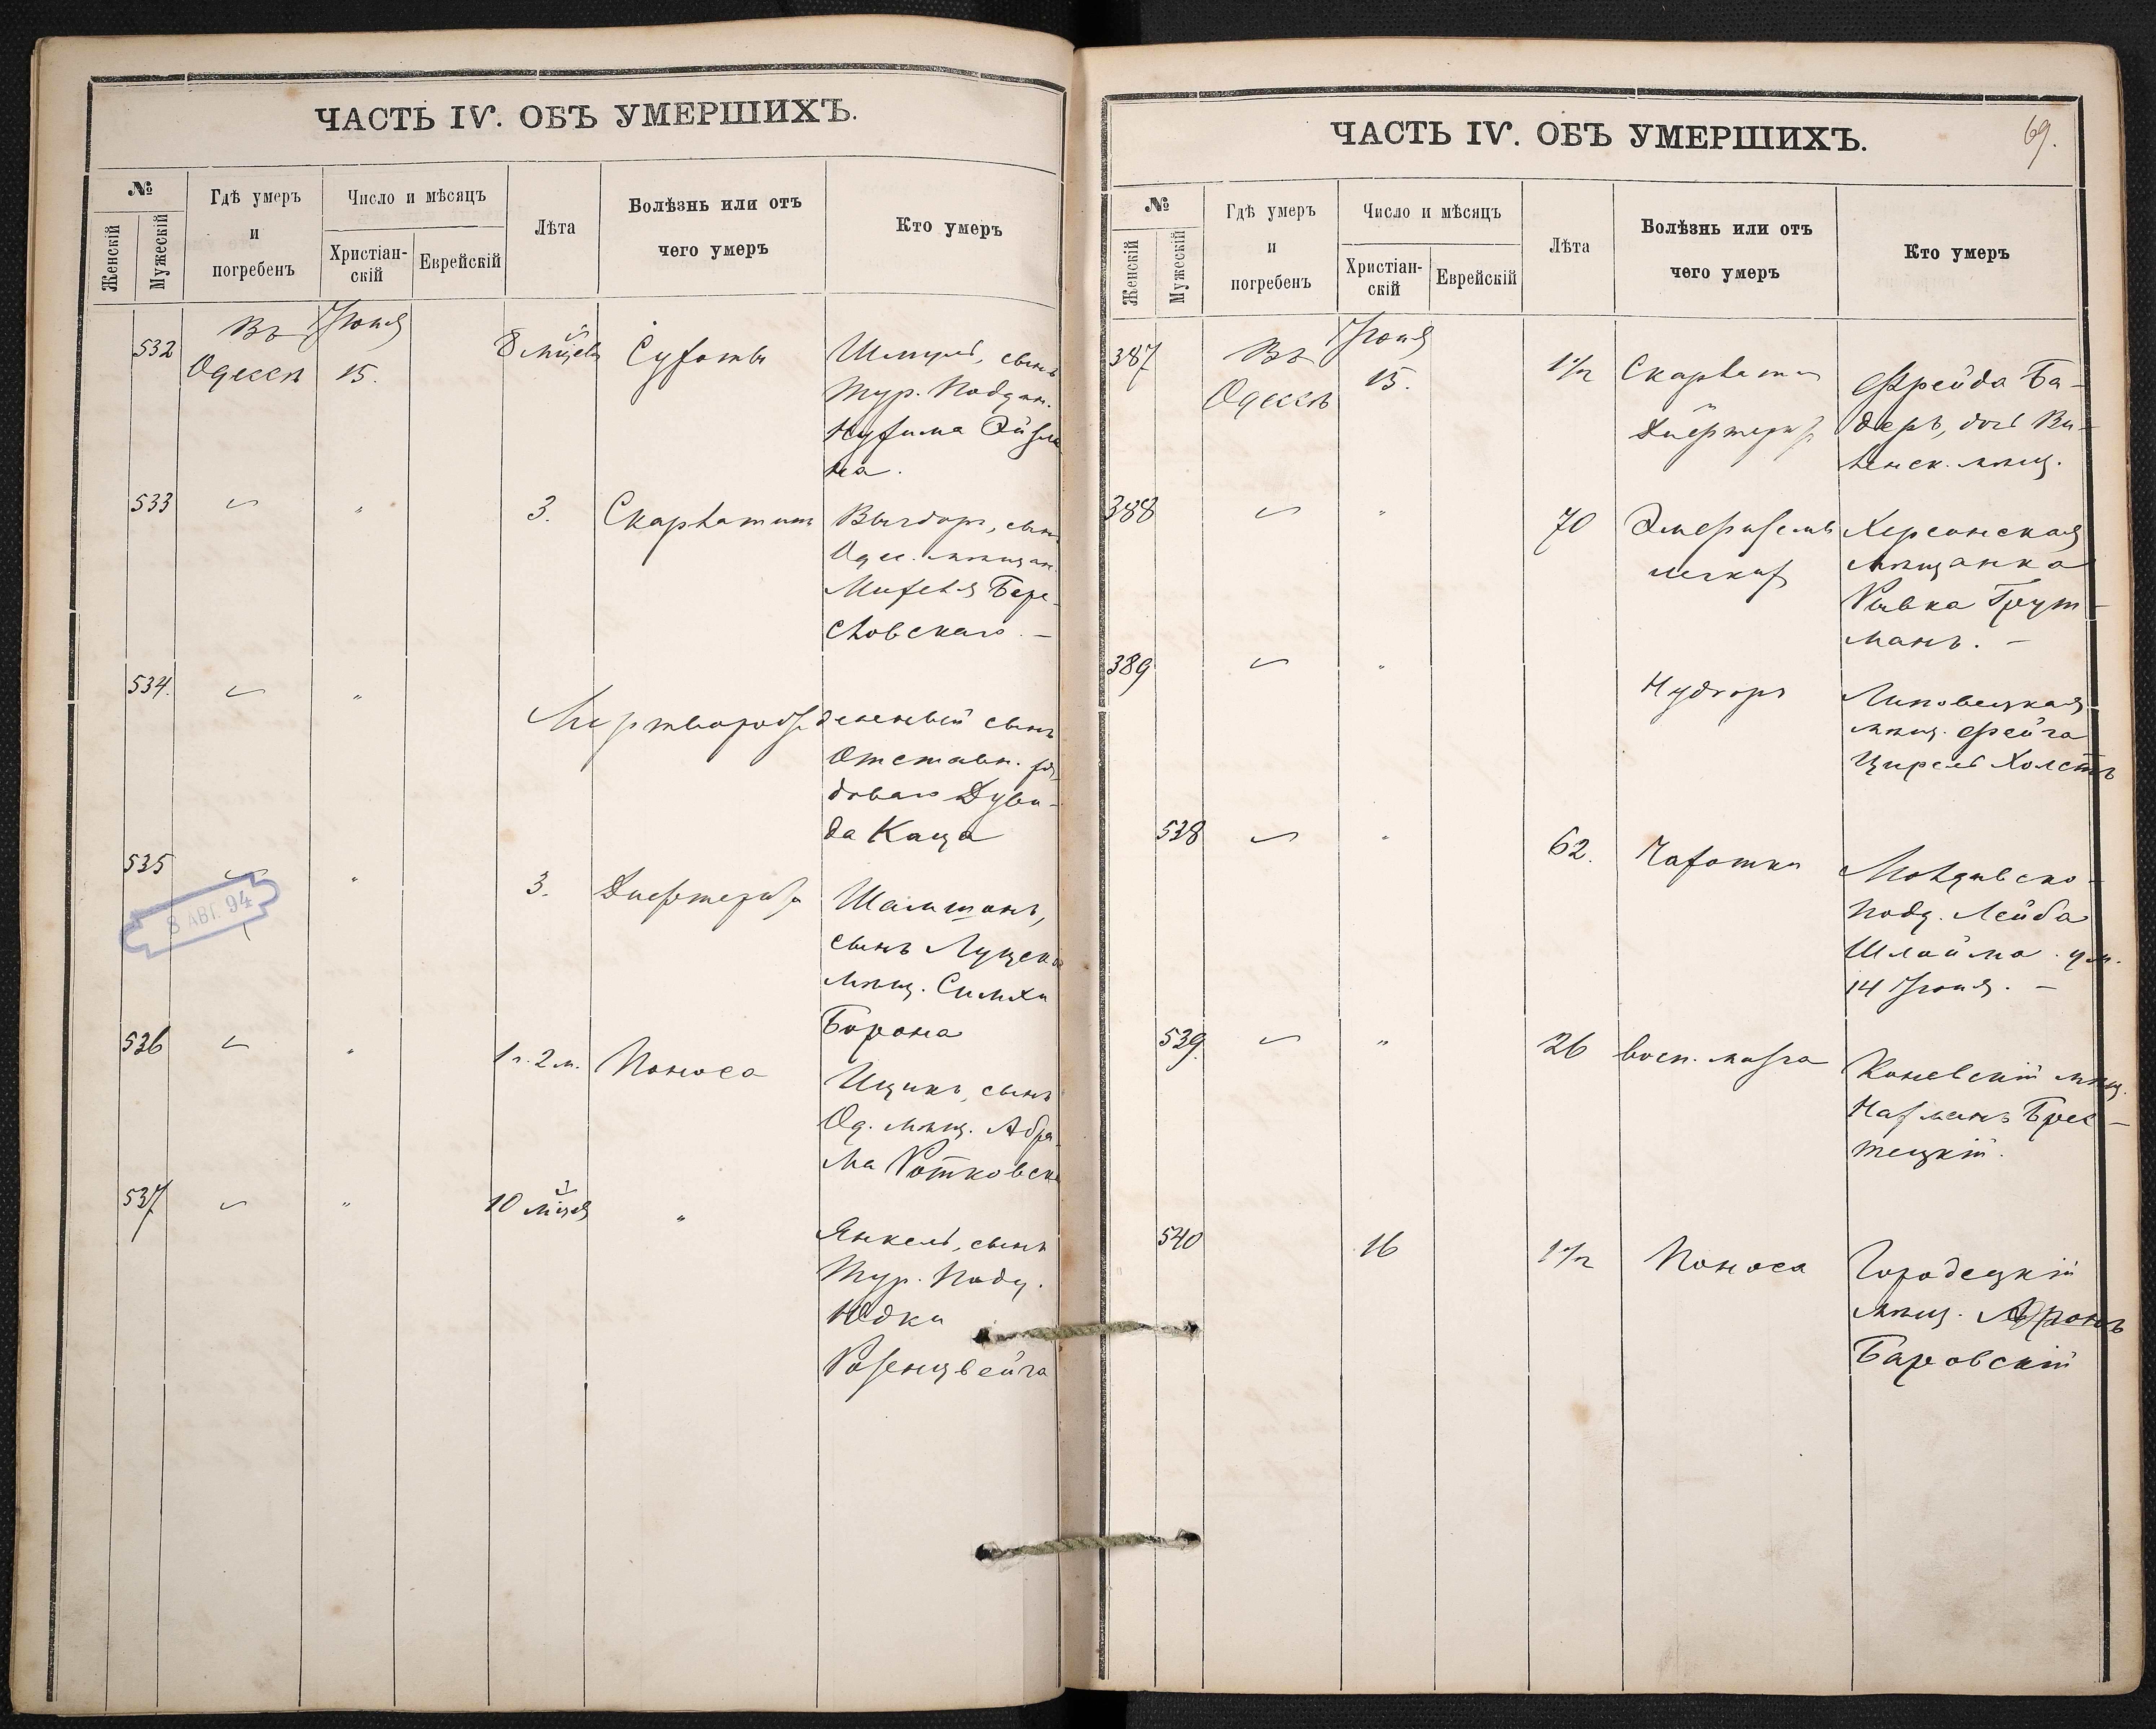 ЧАСТЬ IV. ОБЪ УМЕРШИХЪ.
№
Женскій
Мужескій
Гдѣ умеръ
и
погребенъ
Число и мѣсяцъ
Христіан-
скій
Еврейскій
Лѣта
Болѣзнь или отъ
чего умеръ
Кто умеръ
532
Въ
Одессѣ
Іюня
15.
8
Шмуль, сынъ
Тур. Поддан.
Нухима
на.
533
〃
3.
Скарлатин
сынъ
Одес. мѣщан.
Михеля Бере-
словскаго. —
534.
〃
Мертворожденный сынъ
Отставн. ря-
доваго Дуви-
да Каца
535
〃
3.
Дифтерита
Шамшонъ,
сынъ Луцск
мѣщ. Симхи
Борона
8 АВГ. 94
536
〃
1 г. 2 м.
Поноса
Ицикъ, сынъ
Од. мѣщ. Абра-
ма Ротковск
537
〃
10 мѣся
〃
Янкель, сынъ
Тур. Подд.
Юдки
Розенцвейга
ЧАСТЬ IV. ОБЪ УМЕРШИХЪ.
69.
№
Женскій
Мужескій
Гдѣ умеръ
и
погребенъ
Число и мѣсяцъ
Христіан-
скій
Еврейскій
Лѣта
Болѣзнь или отъ
чего умеръ
Кто умеръ
387
Въ
Одессѣ
Іюня
15.
1 1/2
Скарлатин
Дифтерит
Фрейда Ба-
деръ, дочь Ви-
ленск. мѣщ.
388
〃
70
Эмфизема
легких
Херсонская
мѣщанка
Рывка Грут-
манъ. —
389
〃
Липовецкая
мѣщ. Фейга
Цирель Холстъ
538
〃
62.
Чахотки
Молдавско-
Подд. Лейба
Шлойма. ум.
14 Іюня. —
539.
〃
26
восп. мозга
Каневскій мѣщ.
Нахманъ Брес-
тецкій.
540
16
1 1/2
Поноса
Городецкій
мѣщ. Аронъ
Баровскій